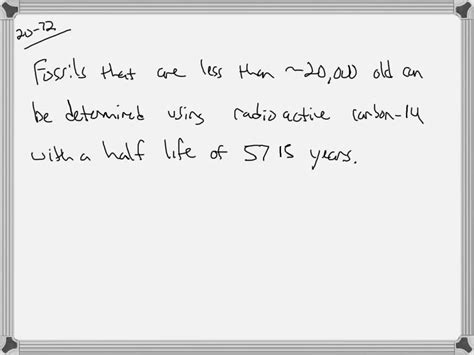 20-72
Fossils that are less than ~20,000 old can
be determined using radioactive carbon-14
with a half life of 5715 years.